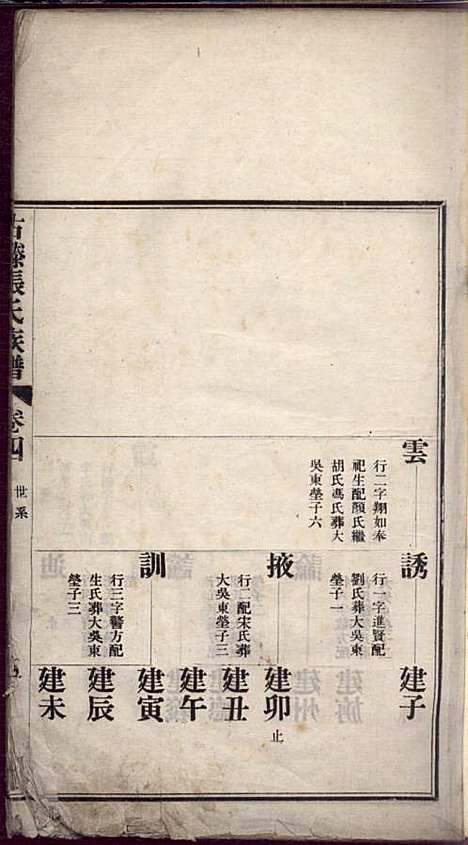 雲
行二字翔如奉
祀生配顏氏繼
胡氏馮氏葬大
吳東塋子六
誘
行一字進賢配
劉氏葬大吳東
塋子一
掖
行二配宋氏葬
大吳東塋子三
訓
行三字警方配
生氏葬大吳東
塋子三
建子
建卯
止
建丑
建午
建寅
建辰
建未
古滕張氏族譜
卷四
世系